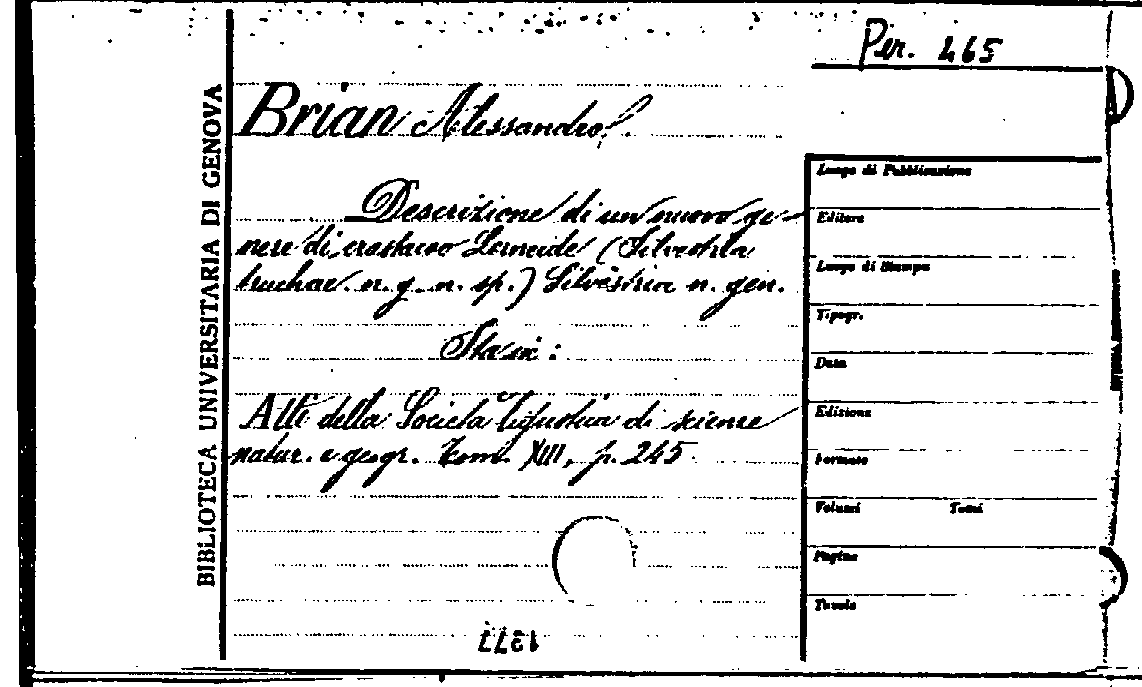 Per. 465
BIBLIOTECA UNIVERSITARIA DI GENOVA
Brian Alessandro.
Descrizione di un nuovo ge-
nere di crostaceo Lerneide (Silvestria
truchae. n. g. n. sp.) Silvestria n. gen.
Sta in:
Atti della Società ligustica di scienze
natur. e geogr. Tom. XIII, p. 245
1377
Luogo di Pubblicazione
Editore
Luogo di Stampa
Tipogr.
Data
Edizione
Formato
Volumi Tomi
Pagine
Tavole